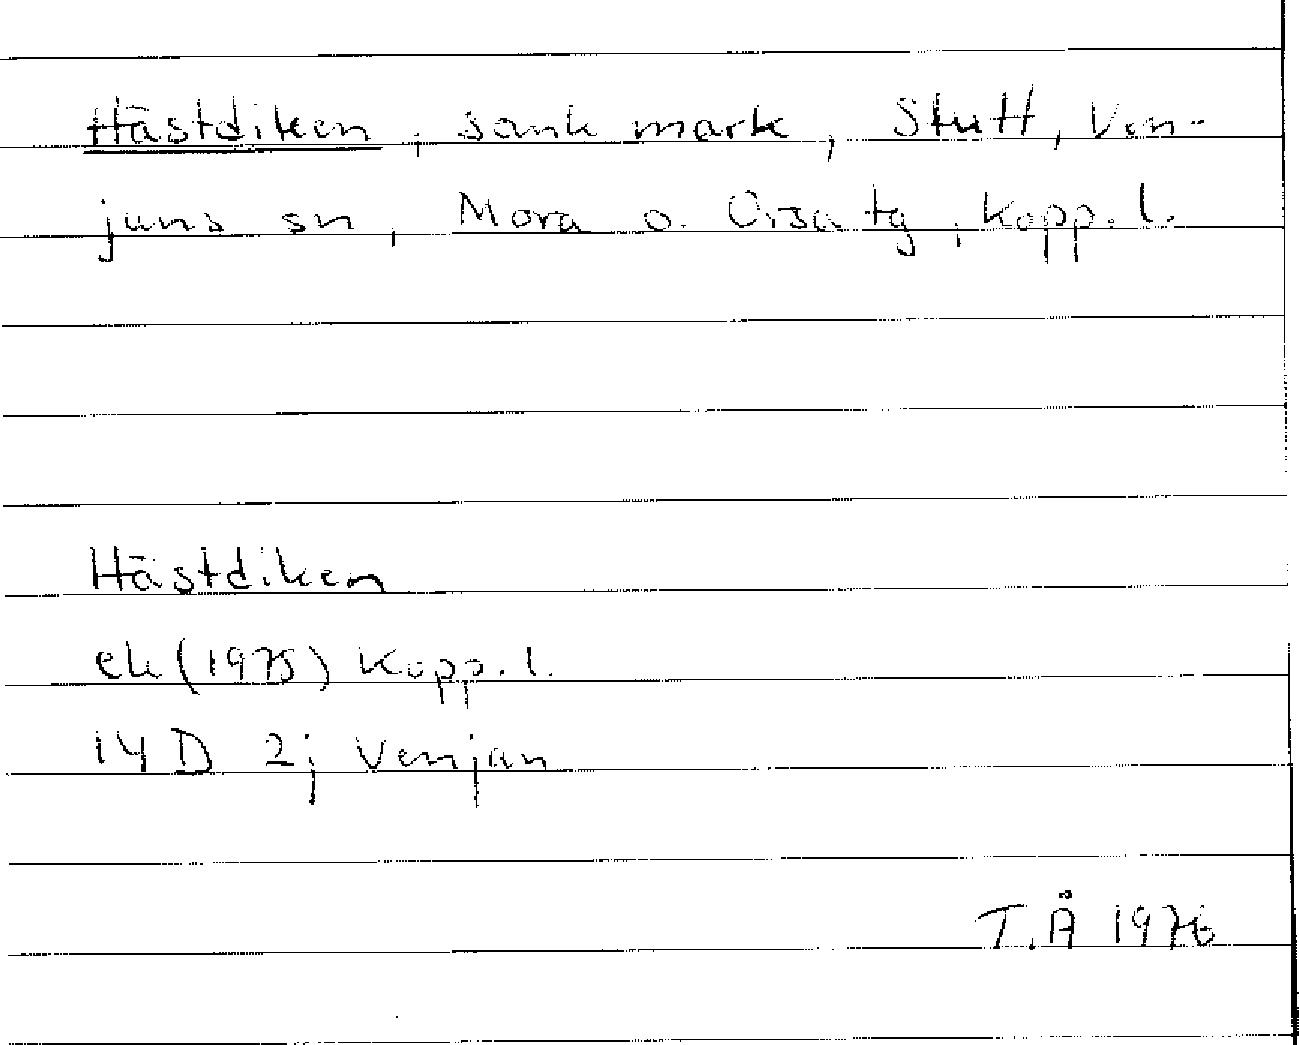 Hästdiken, sank mark, Stutt, Ven-
jans sn, Mora o. Orsa tg, Kopp. l.
Hästdiken
ek (1975) Kopp. l.
14 D 2j Venjan
T.Å 1976